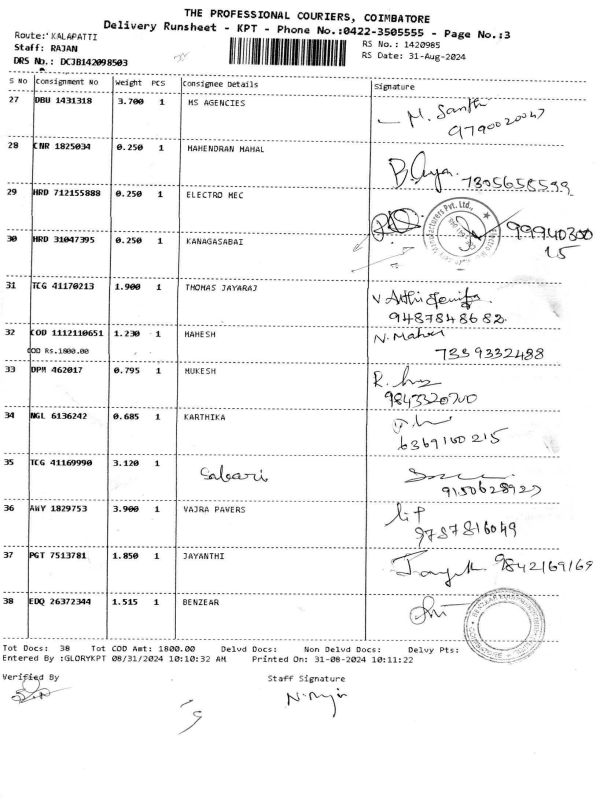 THE PROFESSIONAL COURIERS, COIMBATORE
Delivery Runsheet - KPT - Phone No.:0422-3505555 - Page No.:3
Route: KALAPATTI
RS No.: 1420985
Staff: RAJAN
RS Date: 31-Aug-2024
DRS No.: DCJB142098503
S No Consignment No Weight PCS Consignee Details Signature
27 DBU 1431318 3.700 1 MS AGENCIES M. Santhi
9790020047
28 CNR 1825034 0.250 1 MAHENDRAN MAHAL
7305658599
29 HRD 712155888 0.250 1 ELECTRO MEC
99940300
15
30 HRD 31047395 0.250 1 KANAGASABAI
31 TCG 41170213 1.900 1 THOMAS JAYARAJ
9487848682
32 COD 1112110651 1.230 1 MAHESH N. Mahesh
COD Rs.1800.00 7339332488
33 DPM 462017 0.795 1 MUKESH
9843320700
34 NGL 6136242 0.685 1 KARTHIKA
6369160215
35 TCG 41169990 3.120 1 Sabari
9150628927
36 AWY 1829753 3.900 1 VAJRA PAVERS
9787816049
37 PGT 7513781 1.850 1 JAYANTHI 9842169169
38 EDQ 26372344 1.515 1 BENZEAR
Tot Docs: 38 Tot COD Amt: 1800.00 Delvd Docs: Non Delvd Docs: Delvy Pts:
Entered By :GLORYKPT 08/31/2024 10:10:32 AM Printed On: 31-08-2024 10:11:22
Verified By Staff Signature